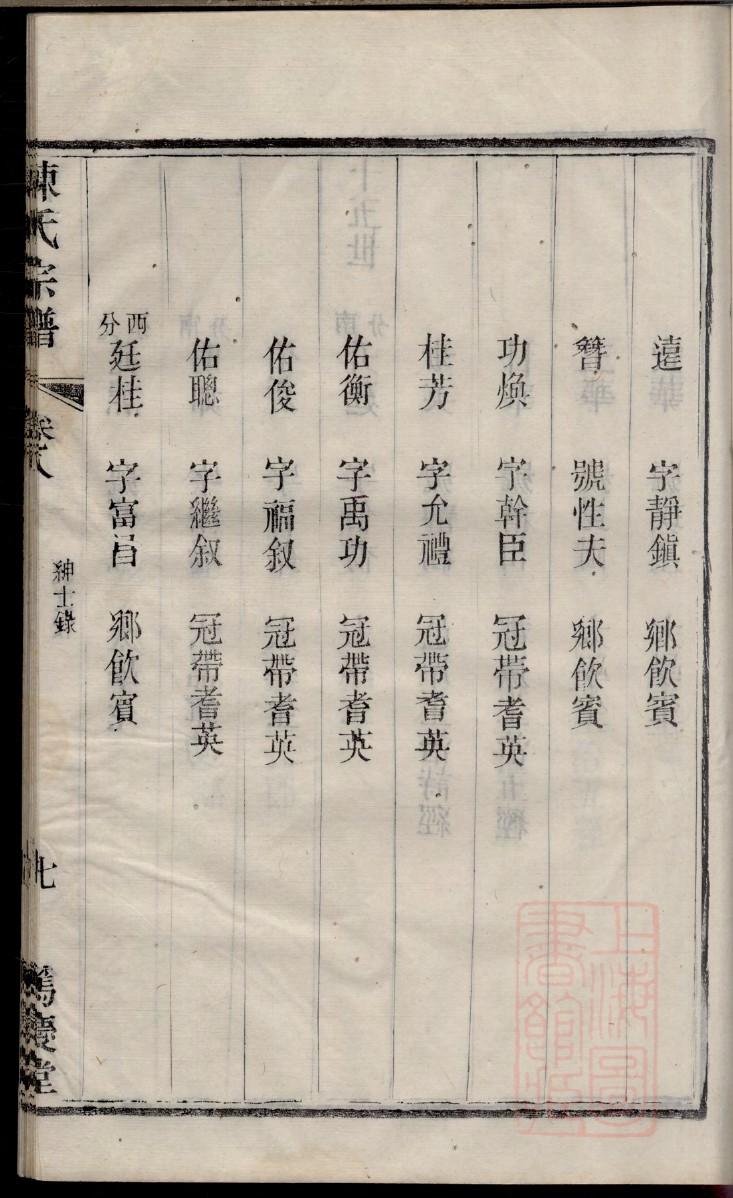 遠 字靜鎭 鄉飮賓
簪 號性夫 鄉飮賓
功煥 字幹臣 冠帶耆英
桂芳 字允禮 冠帶耆英
佑衡 字禹功 冠帶耆英
佑俊 字福叙 冠帶耆英
佑聰 字繼叙 冠帶耆英
西分 廷桂 字富昌 鄉飮賓
陳氏宗譜 卷 紳士錄 七 篤慶堂
上海圖書館藏